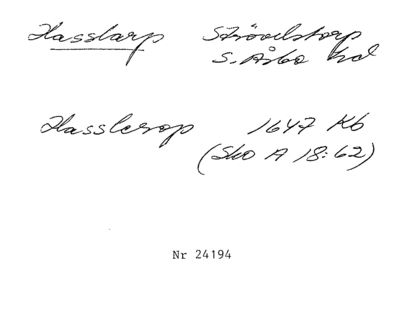 Hasslarp Strövelstorp
S. Åsbo hd
Hasslerop 1647 Kb
(Sko A 18:62)
Nr 24194